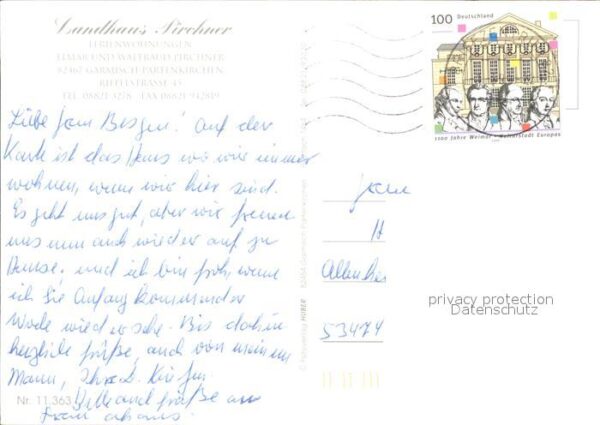 Landhaus Pirchner
FERIENWOHNUNGEN
ELMAR UND WALTRAUD PIRCHNER
82467 GARMISCH-PARTENKIRCHEN
RIFFELSTRASSE 45
TEL. 08821-3278 · FAX 08821-942819
Liebe Frau Besgen! Auf der
Karte ist das Haus wo wir immer
wohnen, wenn wir hier sind.
Es geht uns gut, aber wir freuen
uns nun auch wieder auf zu
Hause, und ich bin froh, wenn
ich Sie Anfang kommender
Woche wieder sehe. Bis dahin
herzliche Grüße, auch von meinem
Mann, Ihre
Bitte auch Grüße an
Frau
Nr. 11.363
HUBER
100 Deutschland
1100 Jahre Weimar - Kulturstadt Europas
53474
privacy protection
Datenschutz